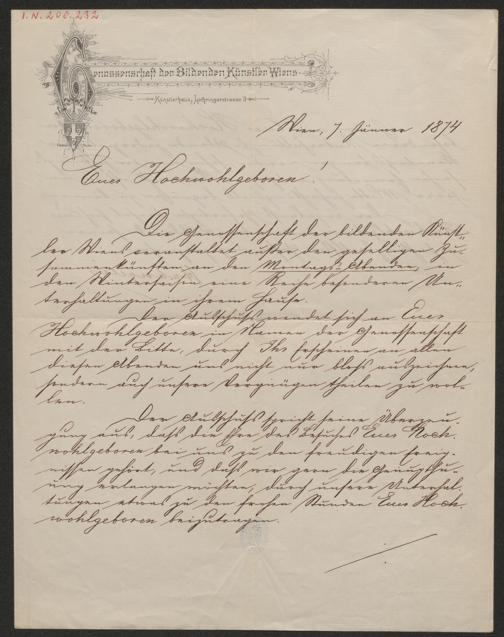 I.N. 208.232
Genossenschaft der Bildenden Künstler Wiens
Künstlerhaus, Lothringerstrasse 9
Wien, 7. Jänner 1874
Euer Hochwohlgeboren!
Die Genossenschaft der bildenden Künst-
ler Wiens veranstaltet außer den geselligen Zu-
sammenkünften an den Montags-Abenden, in
den Wintersaison eine Reihe besonderer Un-
terhaltungen in ihrem Hause.
Der Ausschuß wendet sich an Euer
Hochwohlgeboren im Namen der Genossenschaft
mit der Bitte, durch Ihr Erscheinen an allen
diesen Abenden uns nicht nur bloß auszeichnen,
sondern auch unsere Vergnügen theilen zu wol-
len.
Der Ausschuß spricht seine Überzeu-
gung aus, dass die Ehre des Besuches Euer Hoch-
wohlgeboren bei uns zu den freudigen Ereig-
nissen gehört, und daß wir gern die Genugthu-
ung erlangen möchten, durch unsere Unterhal-
tungen etwas zu den frohen Stunden Euer Hoch-
wohlgeboren beizutragen.